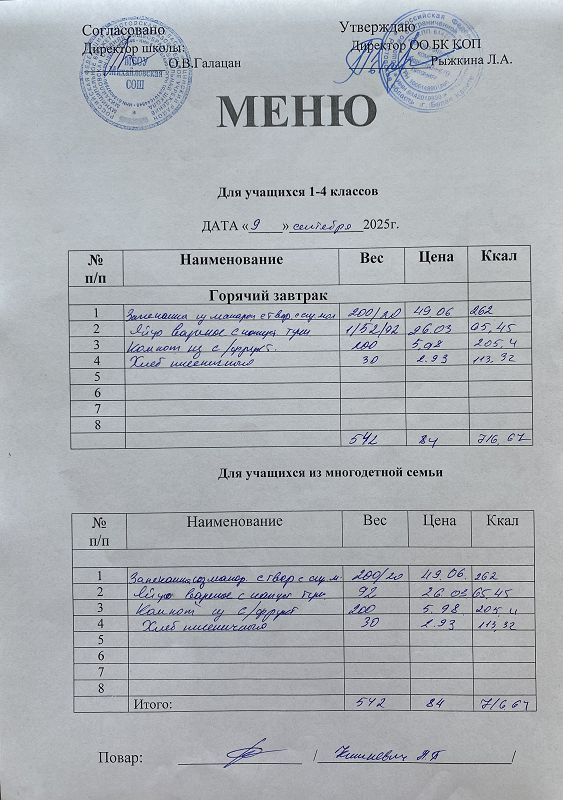 Согласовано Утверждаю
Директор школы: Директор ОО.БК КОП
О.В.Галацан Рыжкина Л.А.
МБОУ
Михайловская
СОШ
МЕНЮ
Для учащихся 1-4 классов
ДАТА « 9 » сентября 2025г.
№ п/п Наименование Вес Цена Ккал
Горячий завтрак
1 Запеканка из макарон с твор. с сгу.мол 200/20 49.06 262
2 Яйцо вареное с консер 1/52/92 26.03 95.45
3 Компот из с/фрукт. 200 5,98 205,4
4 Хлеб пшеничный 30 2.93 113,32
5
6
7
8
542 84 716,67
Для учащихся из многодетной семьи
№ п/п Наименование Вес Цена Ккал
1 Запеканка из макар. с твор с сгу.м. 200/20 49.06. 262
2 Яйцо вареное с 92 26.03 95.45
3 Компот из с/фрукт 200 5.98 205.4
4 Хлеб пшеничный 30 2.93 113,32
5
6
7
8
Итого: 542 84 716 67
Повар: / /